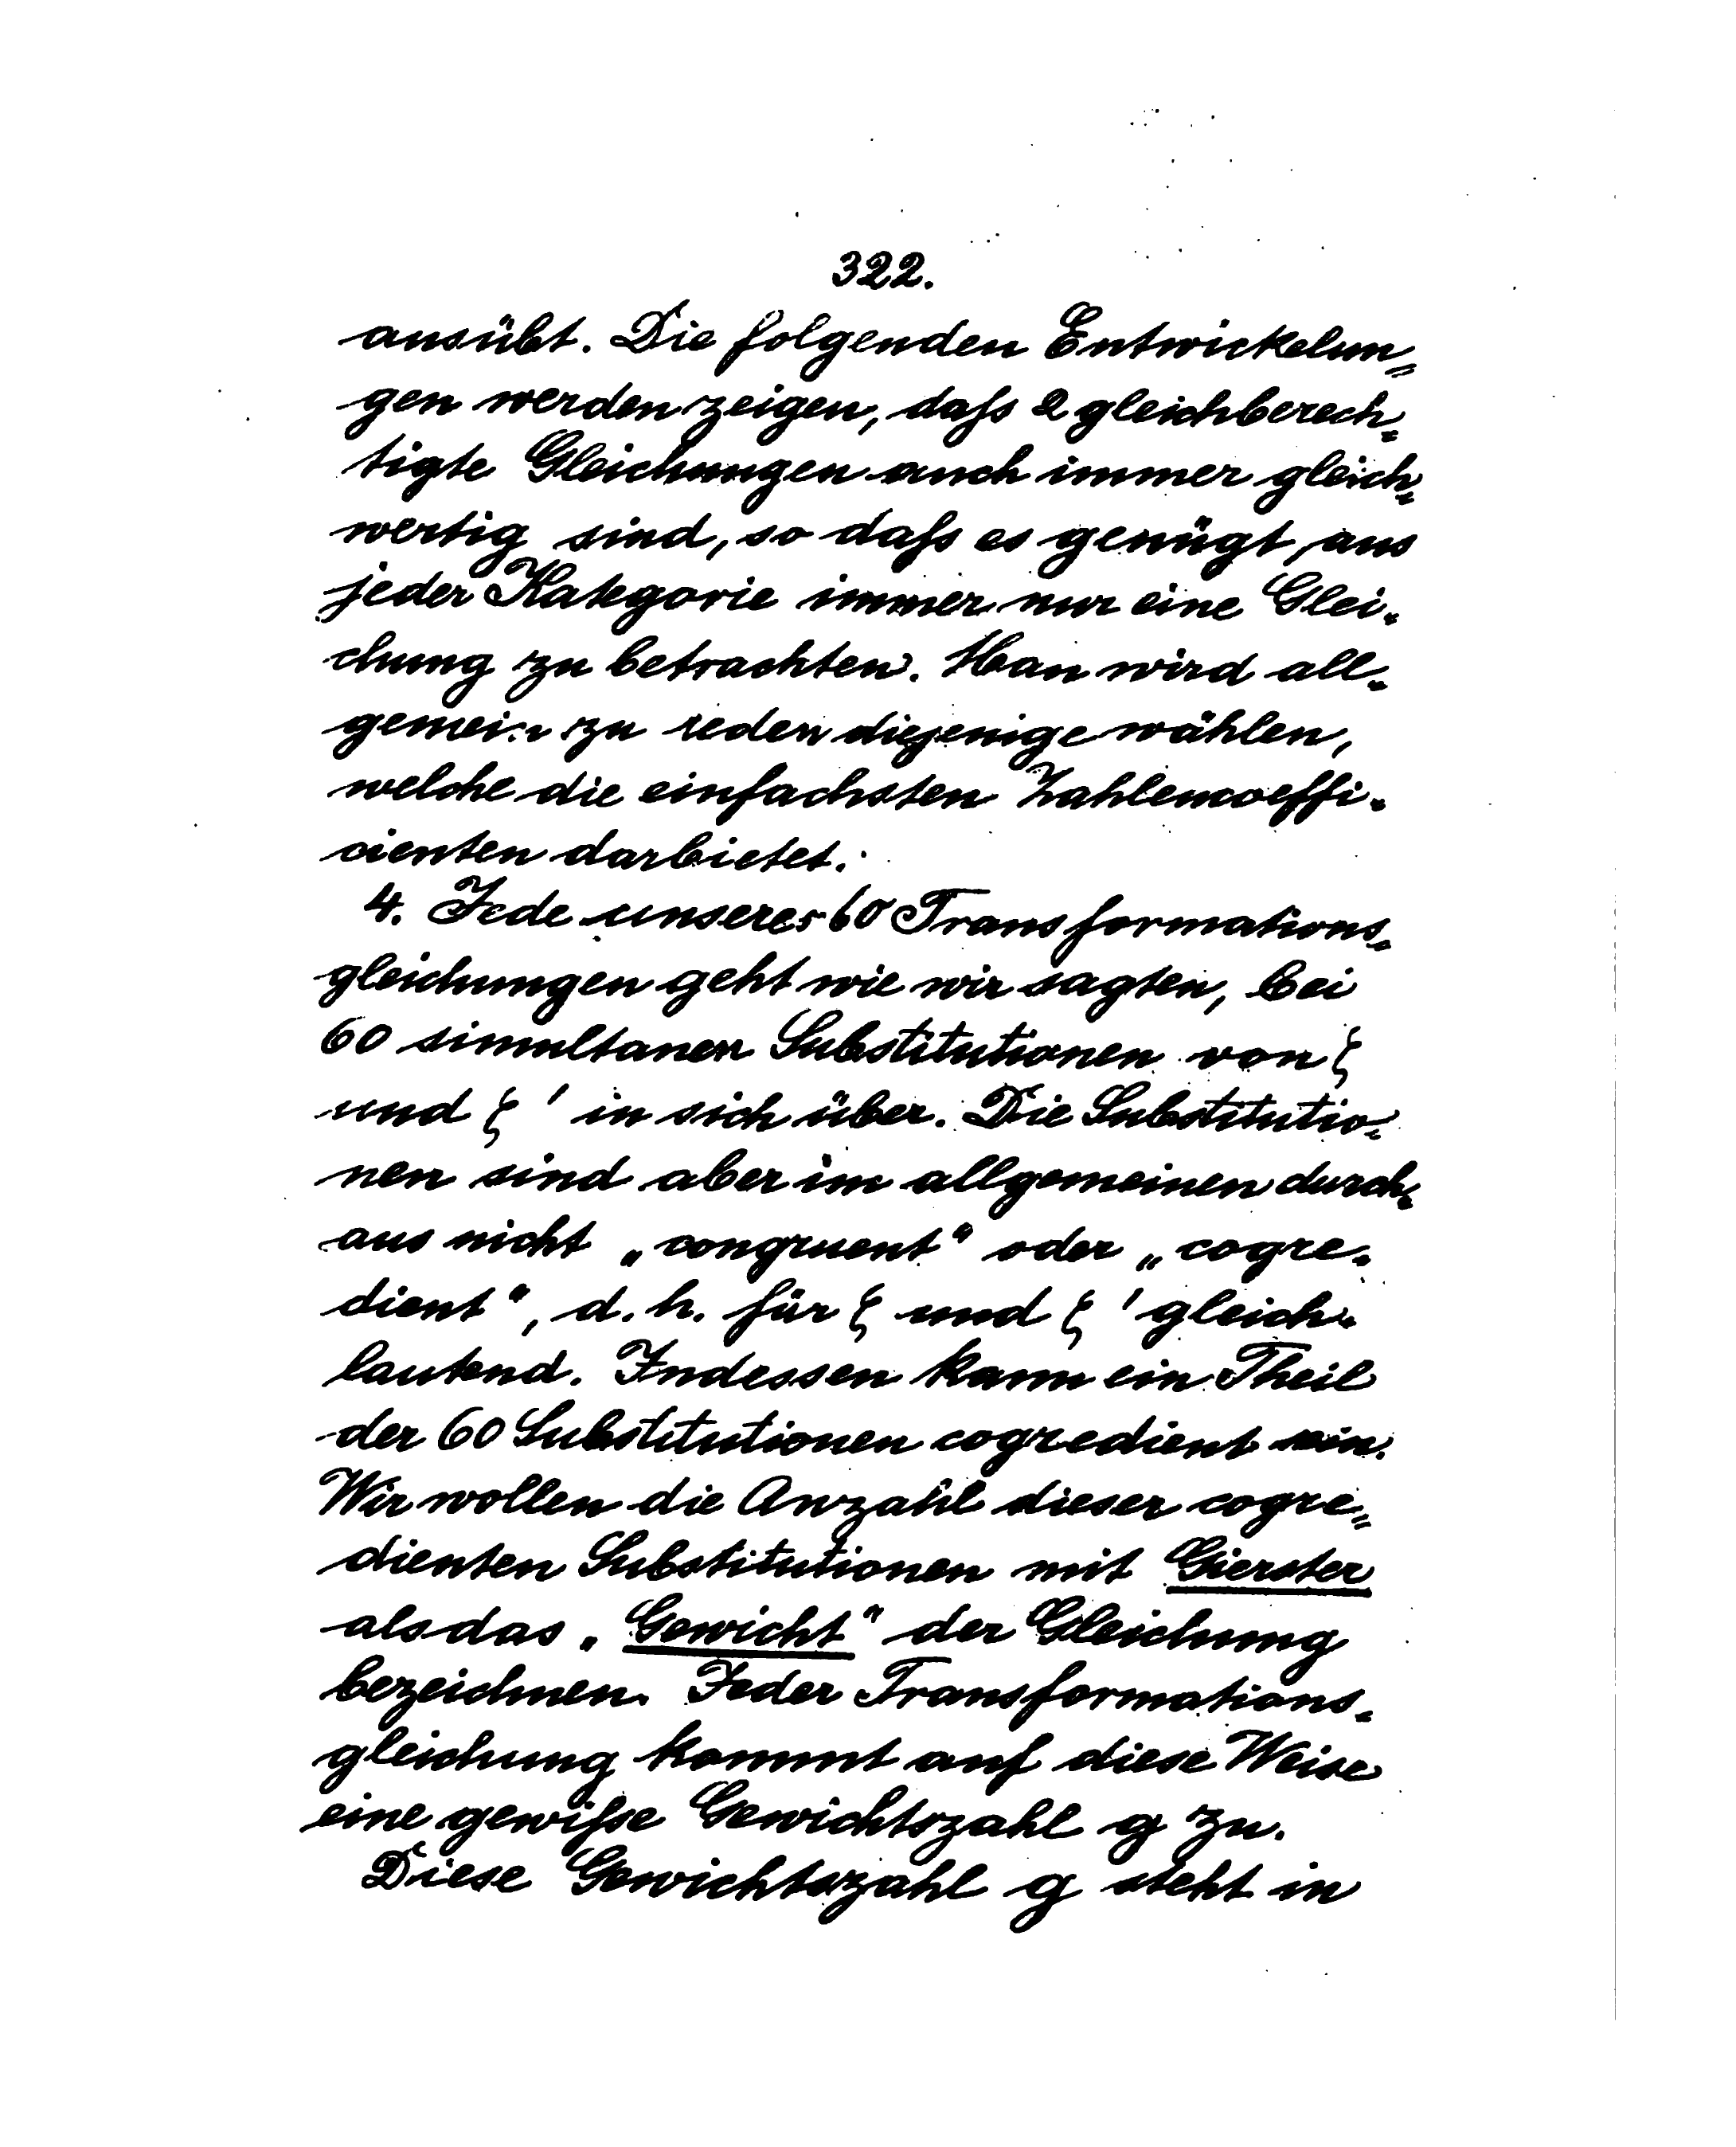 322.
ausübt. Die folgenden Entwickelun=
gen werden zeigen, daſs 2 gleichberech=
tigte Gleichungen auch immer gleich=
wertig sind, so daſs es genügt, aus
jeder Kategorie immer nur eine Glei=
chung zu betrachten. Man wird all=
gemein zu reden diejenige wählen,
welche die einfachsten Zahlencoeffi=
cienten darbietet.
4. Jede unserer 60 Transformations=
gleichungen geht wie wir sagten, bei
60 simultanen Substitutionen von ζ
und ζ' in sich über. Die Substitutio=
nen sind aber im allgemeinen durch=
aus nicht „congruent“ oder „cogre=
dient“, d. h. für ζ und ζ' gleich=
lautend. Indessen kann ein Theil
der 60 Substitutionen cogredient sein.
Wir wollen die Anzahl dieser cogre=
dienten Substitutionen mit Gierster
als das „Gewicht“ der Gleichung
bezeichnen. Jeder Transformations=
gleichung kommt auf diese Weise
eine gewiſse Gewichtszahl g zu.
Diese Gewichtszahl g steht in